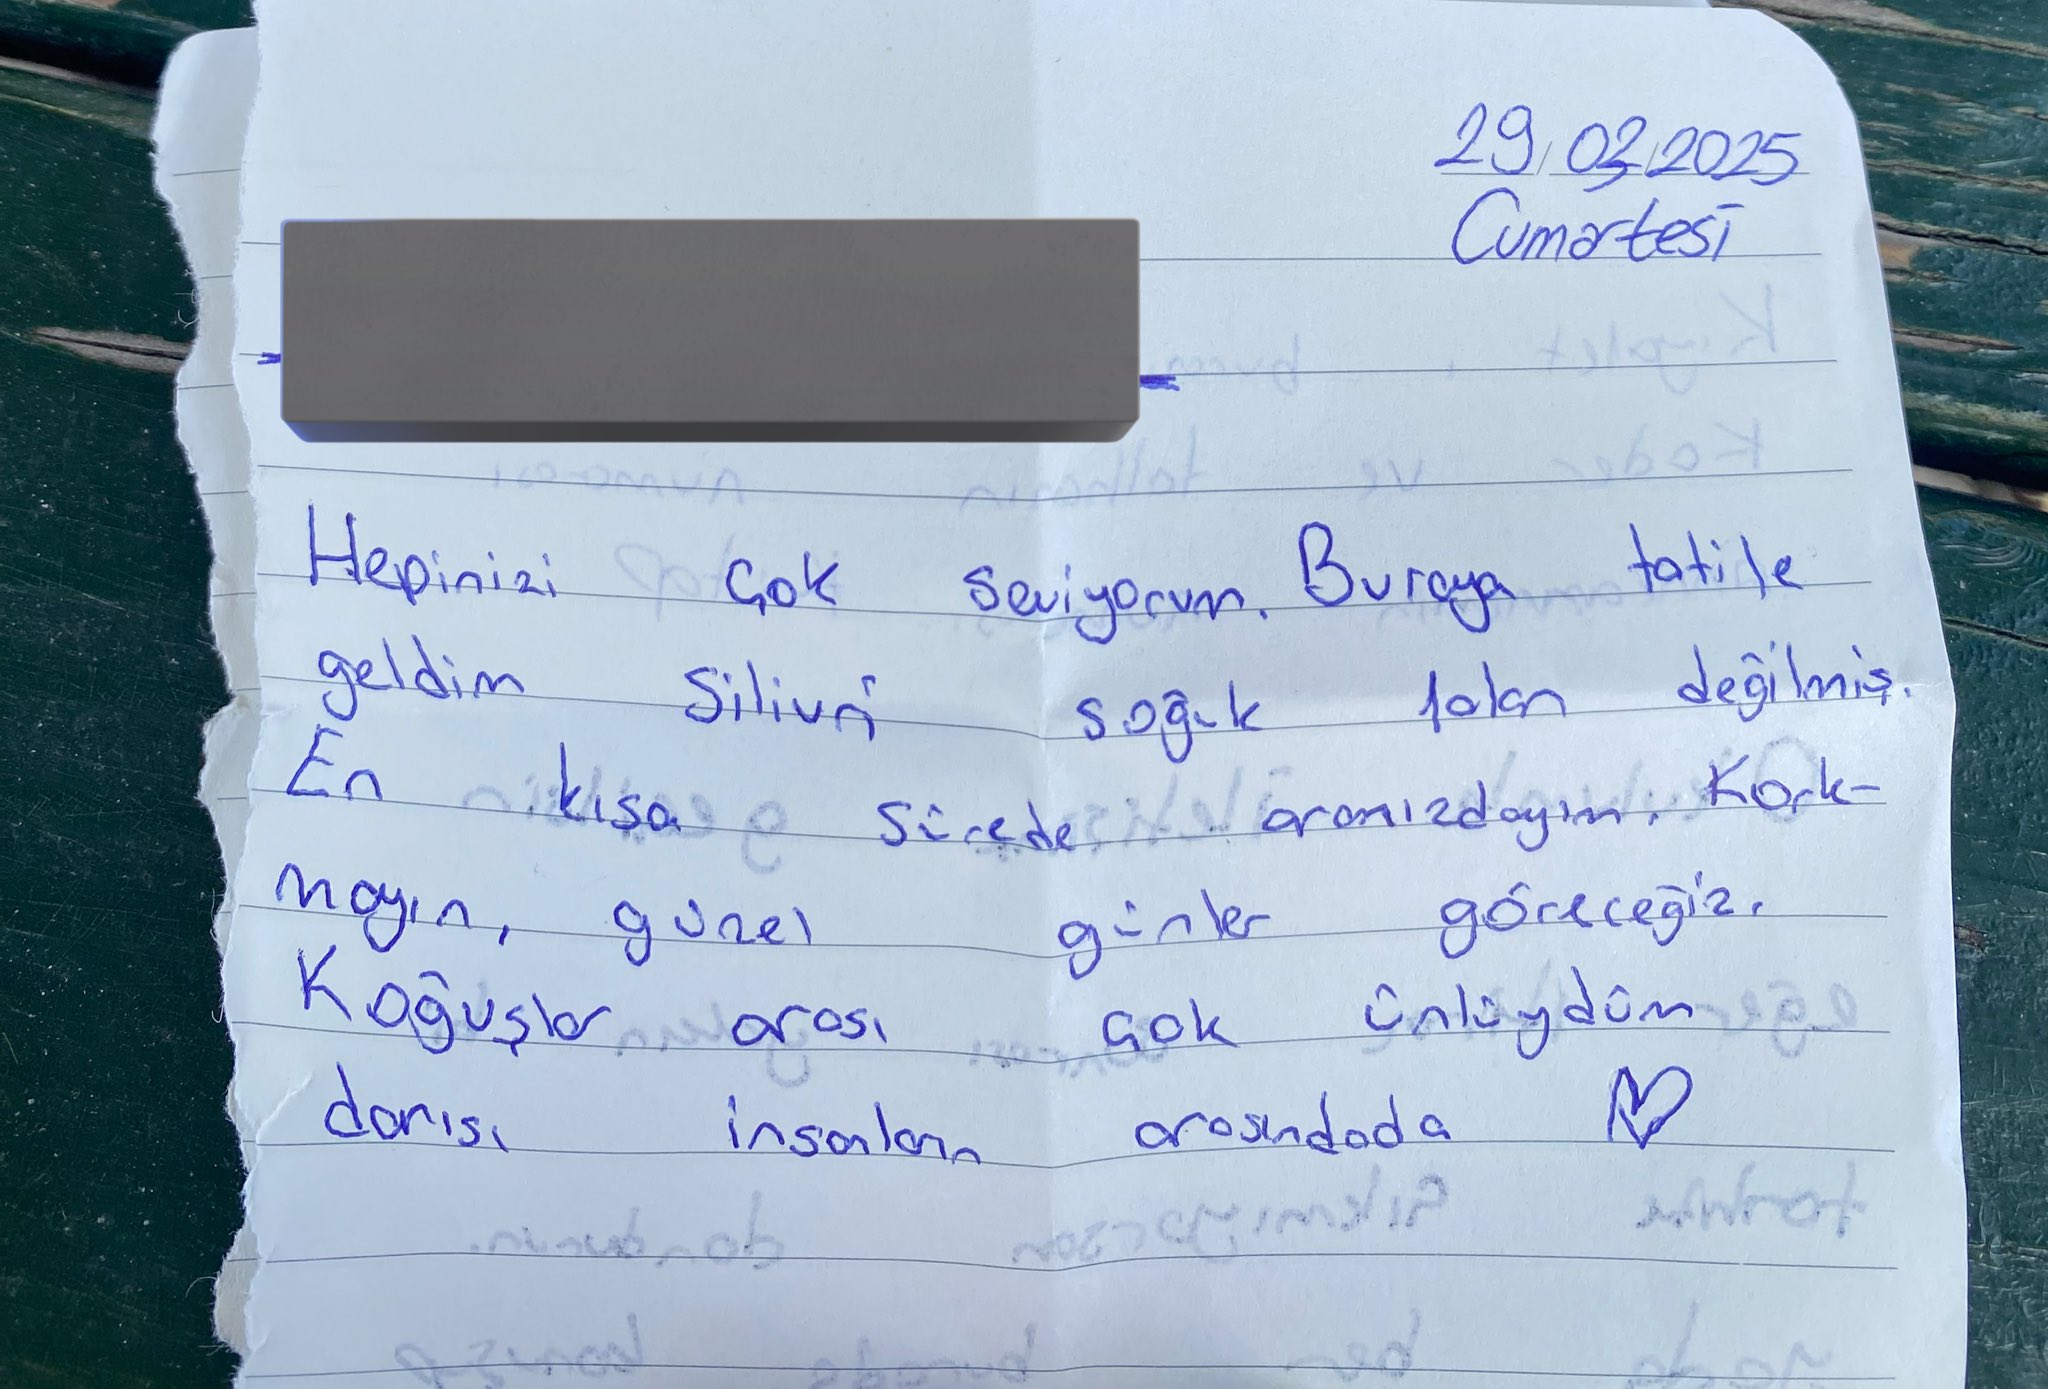 29/03/2025
Cumartesi
Hepinizi çok seviyorum. Buraya tatile
geldim Silivri soğuk falan değilmiş.
En kısa sürede aranızdayım. Kork-
mayın, güzel günler göreceğiz.
Koğuşlar arası çok ünlüydüm
darısı insanların arasındada